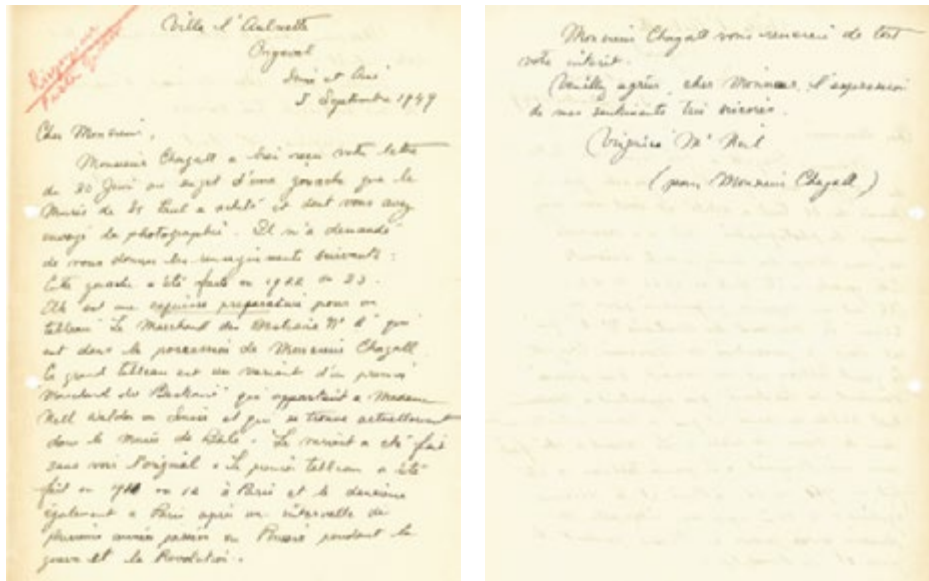 Ville l'Aulnette
Orgeval
Seine et Oise
5 Septembre 1949
Cher Monsieur,
Monsieur Chagall a bien reçu votre lettre
du 20 Juin au sujet d'une gouache que le
Musée de St Paul a acheté et dont vous avez
envoyé la photographie. Il m'a demandé
de vous donner les renseignements suivants :
Cette gouache a été faite en 1922 ou 23.
Elle est une esquisse preparatoire pour un
tableau "Le Marchand des Bestiaux N° 2" qui
est dans la possession de Monsieur Chagall.
Ce grand tableau est un variant d'un premier
"Marchand des Bestiaux" qui appartient a Madame
Nell Walden en Suisse et qui se trouve actuellement
dans le Musée de Bâle. Le variant a été fait
sans voir l'original. Le premier tableau a été
fait en ou 12 à Paris et le deuxième
également a Paris après un intervalle de
plusieurs années passées en Russie pendant la
guerre et la Revolution.
Monsieur Chagall vous remercie de tout
votre interêt.
Veuillez agréer, cher Monsieur, l'expression
de mes sentiments très sincères.
Virginia Mc Neil
(pour Monsieur Chagall)